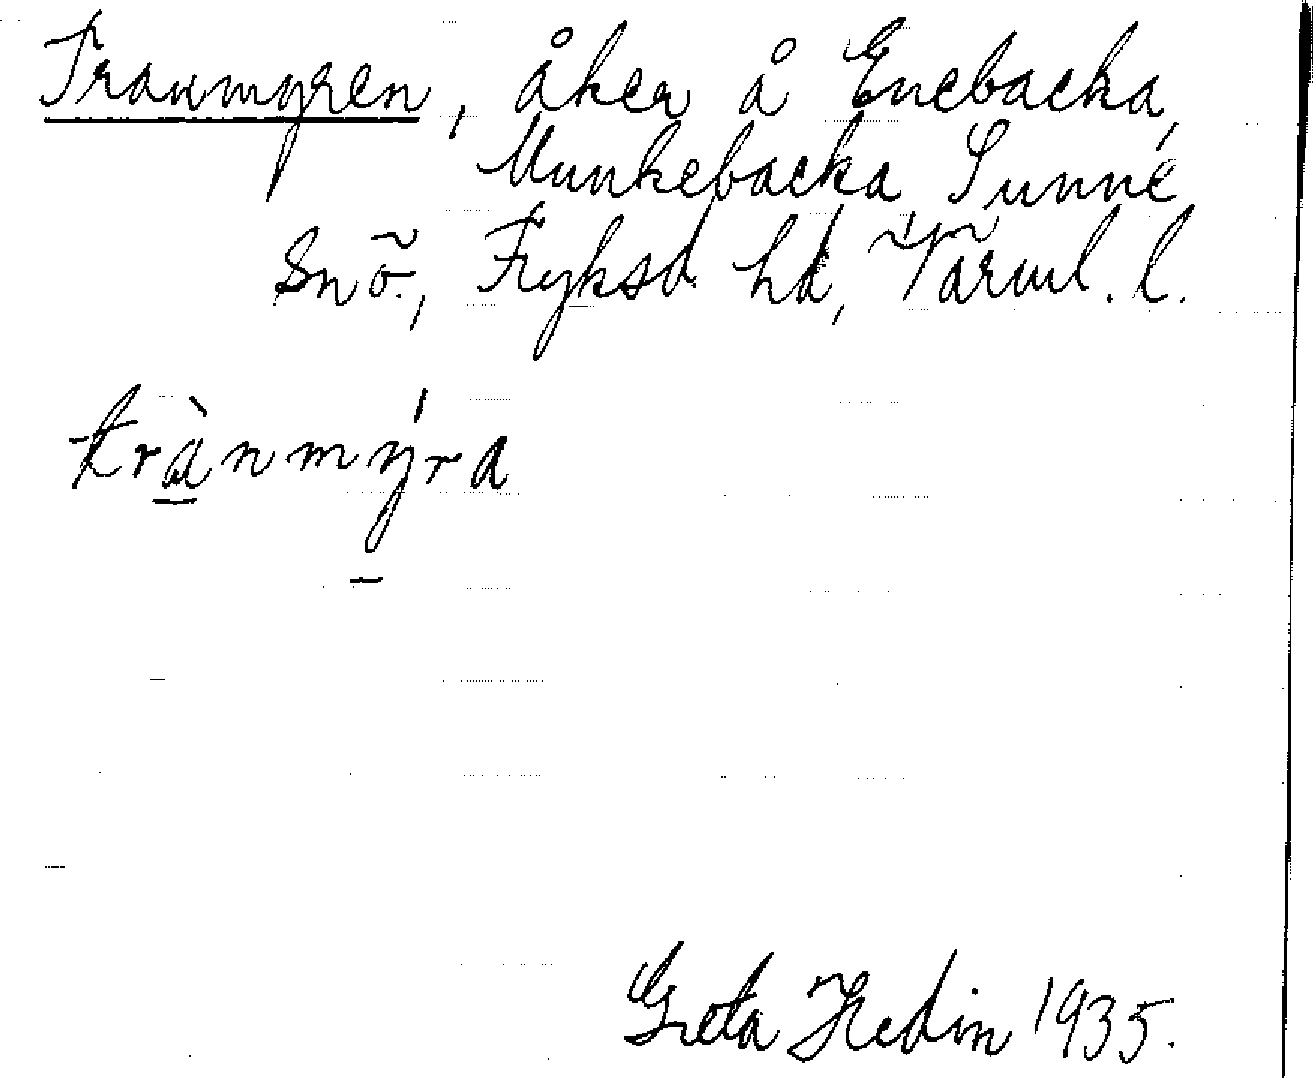 Tranmyren, åker å Enebacka,
Munkebacka Sunne
Snõ., Fryksd. hd, Värml. l.
trànmýra
Greta Hedin 1935.